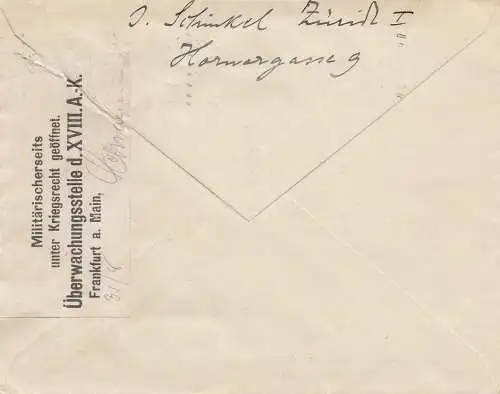 J. Schinkel Zürich I
Hornergasse 9
Militärischerseits
unter Kriegsrecht geöffnet.
Überwachungsstelle d. XVIII. A.-K.
Frankfurt a. Main,
31/8